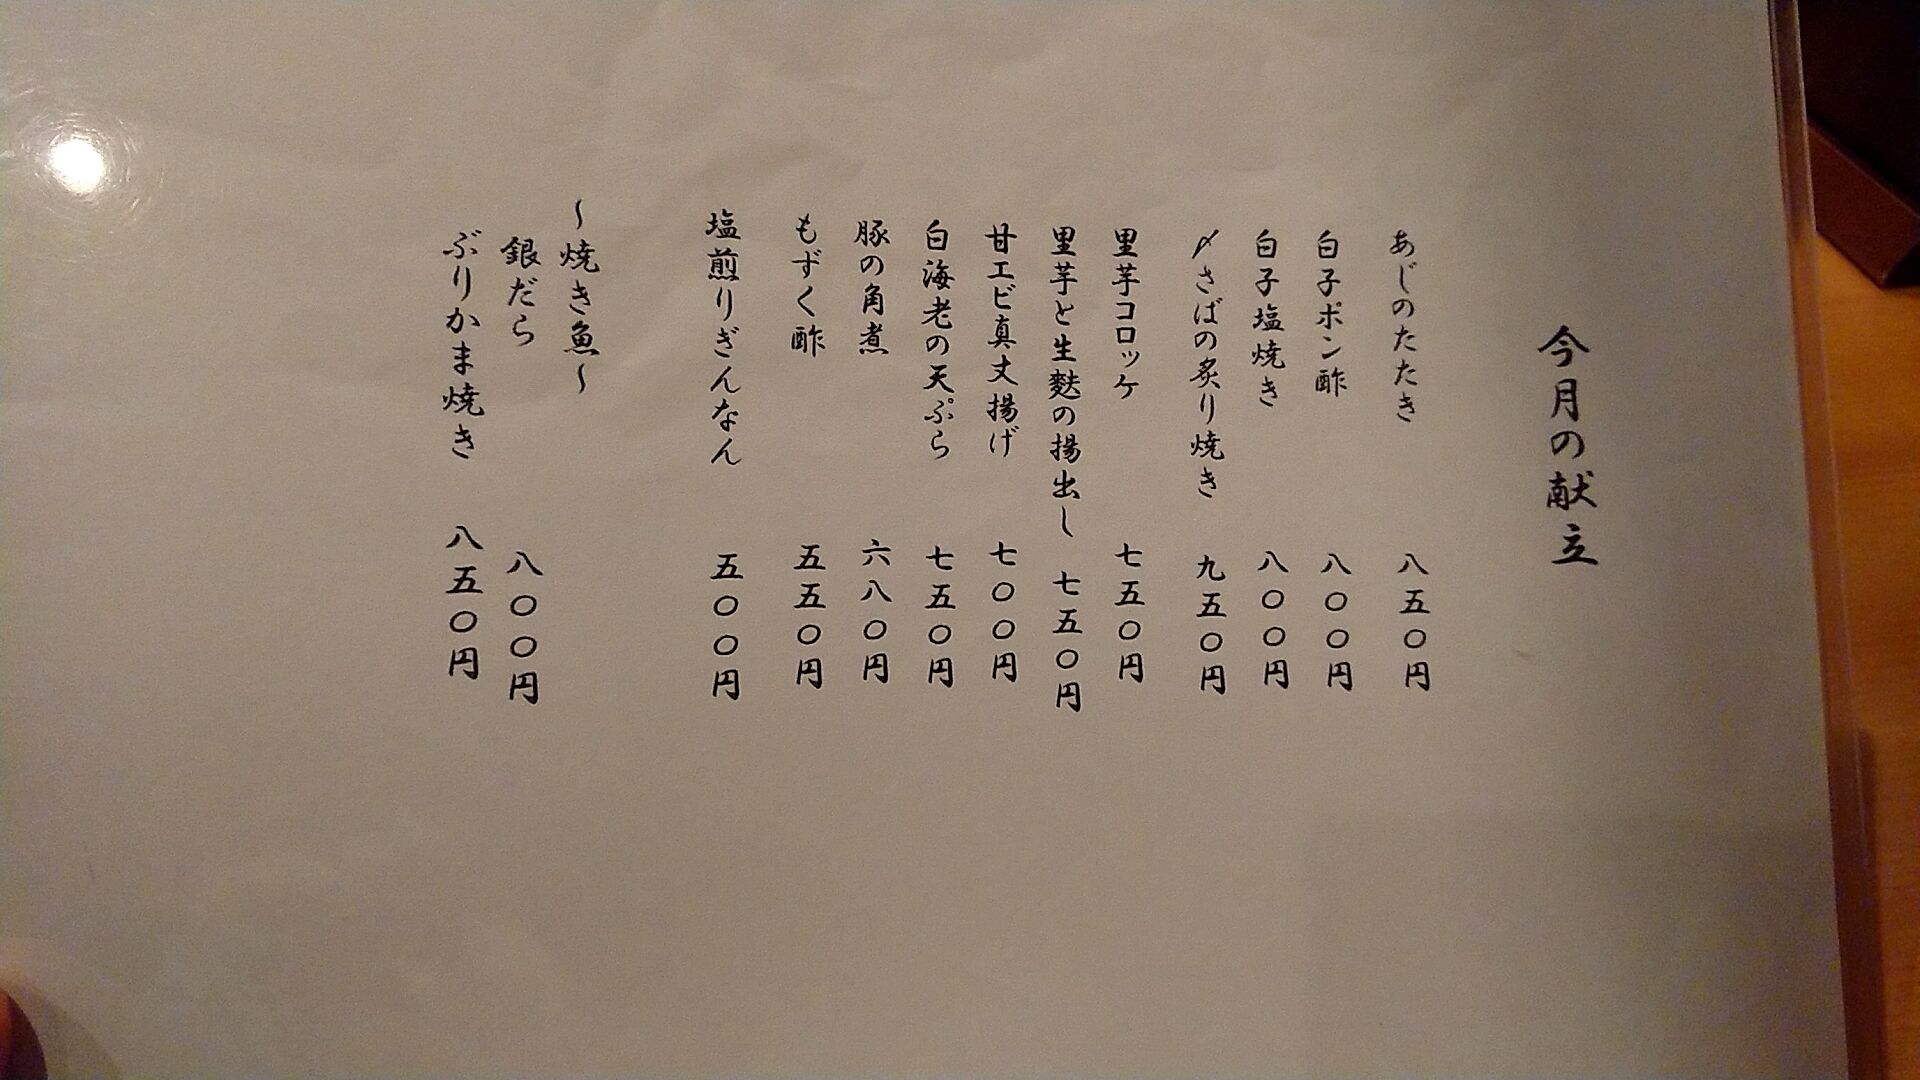 今月の献立
あじのたたき 八五〇円
白子ポン酢 八〇〇円
白子塩焼き 八〇〇円
〆さばの炙り焼き 九五〇円
里芋コロッケ 七五〇円
里芋と生麩の揚出し 七五〇円
甘エビ真丈揚げ 七〇〇円
白海老の天ぷら 七五〇円
豚の角煮 六八〇円
もずく酢 五五〇円
塩煎りぎんなん 五〇〇円
～焼き魚～
銀だら 八〇〇円
ぶりかま焼き 八五〇円